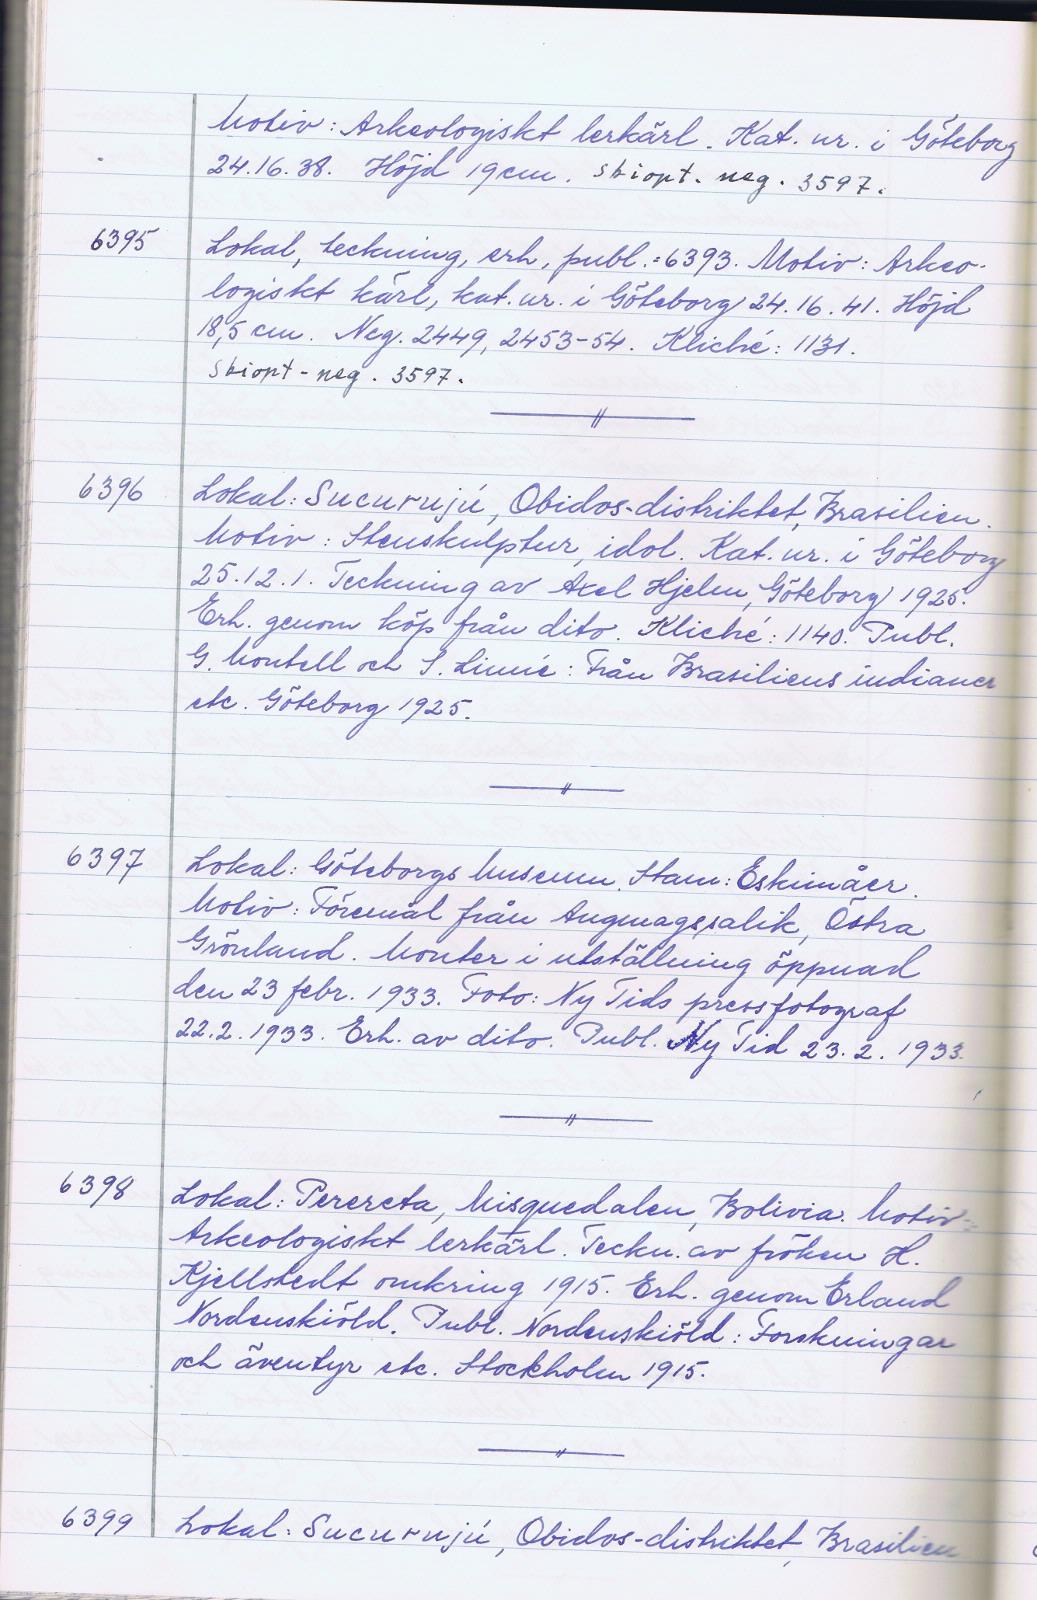 Motiv: Arkeologiskt lerkärl. Kat. nr. i Göteborg
24.16.38. Höjd 19 cm. skiopt. neg. 3597.
6395 Lokal, teckning, erh, publ.=6393. Motiv: Arkeo-
logiskt kärl, kat. nr. i Göteborg 24.16.41. Höjd
18,5 cm. Neg. 2449, 2453-54. Kliché: 1131.
skiopt-neg. 3597.
6396 Lokal: Sucurujú, Obidos-distriktet, Brasilien.
Motiv: Stenskulptur, idol. Kat. nr. i Göteborg
25.12.1. Teckning av Axel Hjelm, Göteborg 1925.
Erh. genom köp från dito. Kliché: 1140. Publ.
G. Montell och S. Linné: Från Brasiliens indianer
etc. Göteborg 1925.
6397 Lokal: Göteborgs Museum. Stam: Eskimåer.
Motiv: Föremål från Angmagssalik, Östra
Grönland. Monter i utställning öppnad
den 23 febr. 1933. Foto: Ny Tids pressfotograf
22.2.1933. Erh. av dito. Publ. Ny Tid 23.2.1933.
6398 Lokal: Perereta, Misquedalen, Bolivia. Motiv:
Arkeologiskt lerkärl. Teckn. av fröken H.
Kjellstedt omkring 1915. Erh. genom Erland
Nordenskiöld. Publ. Nordenskiöld: Forskningar
och äventyr etc. Stockholm 1915.
6399 Lokal: Sucurujú, Obidos-distriktet, Brasilien